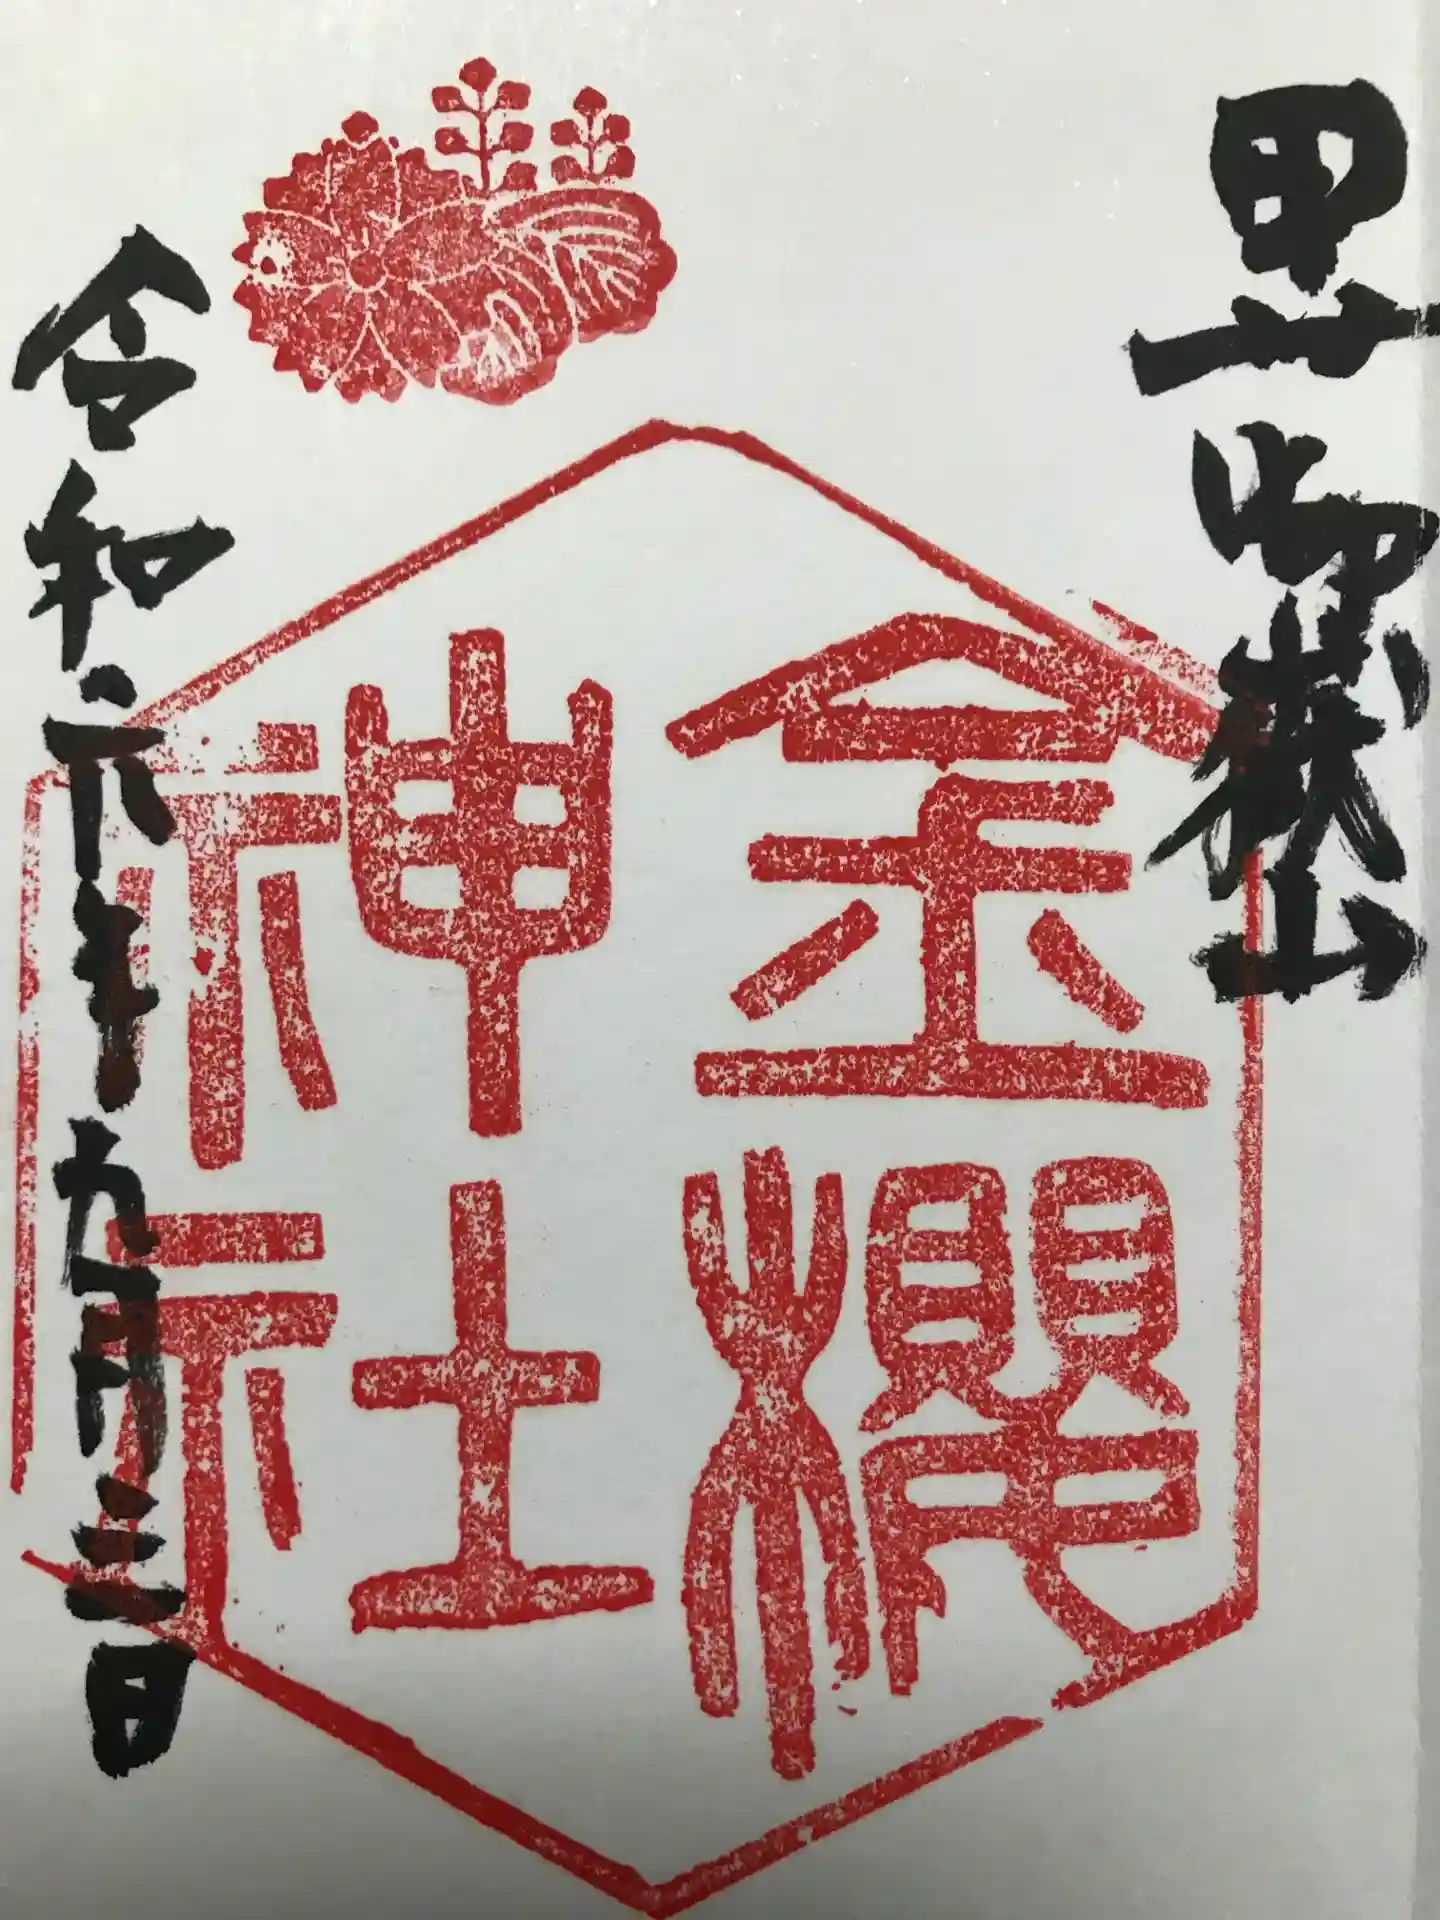 御嶽山
金櫻
神社
令和六年九月三日